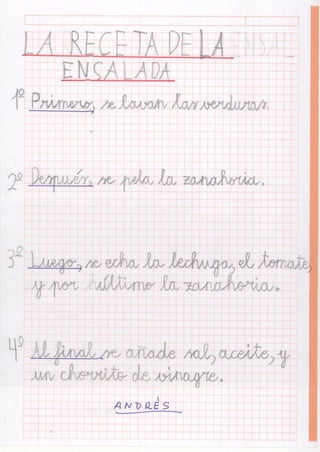 LA RECETA DE LA
ENSALADA
1º Primero, se lavan las verduras.
2º Después, se pela la zanahoria.
3º Luego, se echa la lechuga, el tomate,
y por húltimo la zanahoria.
4º Al final se añade sal, aceite, y
un chorrito de vinagre.
ANDRÉS